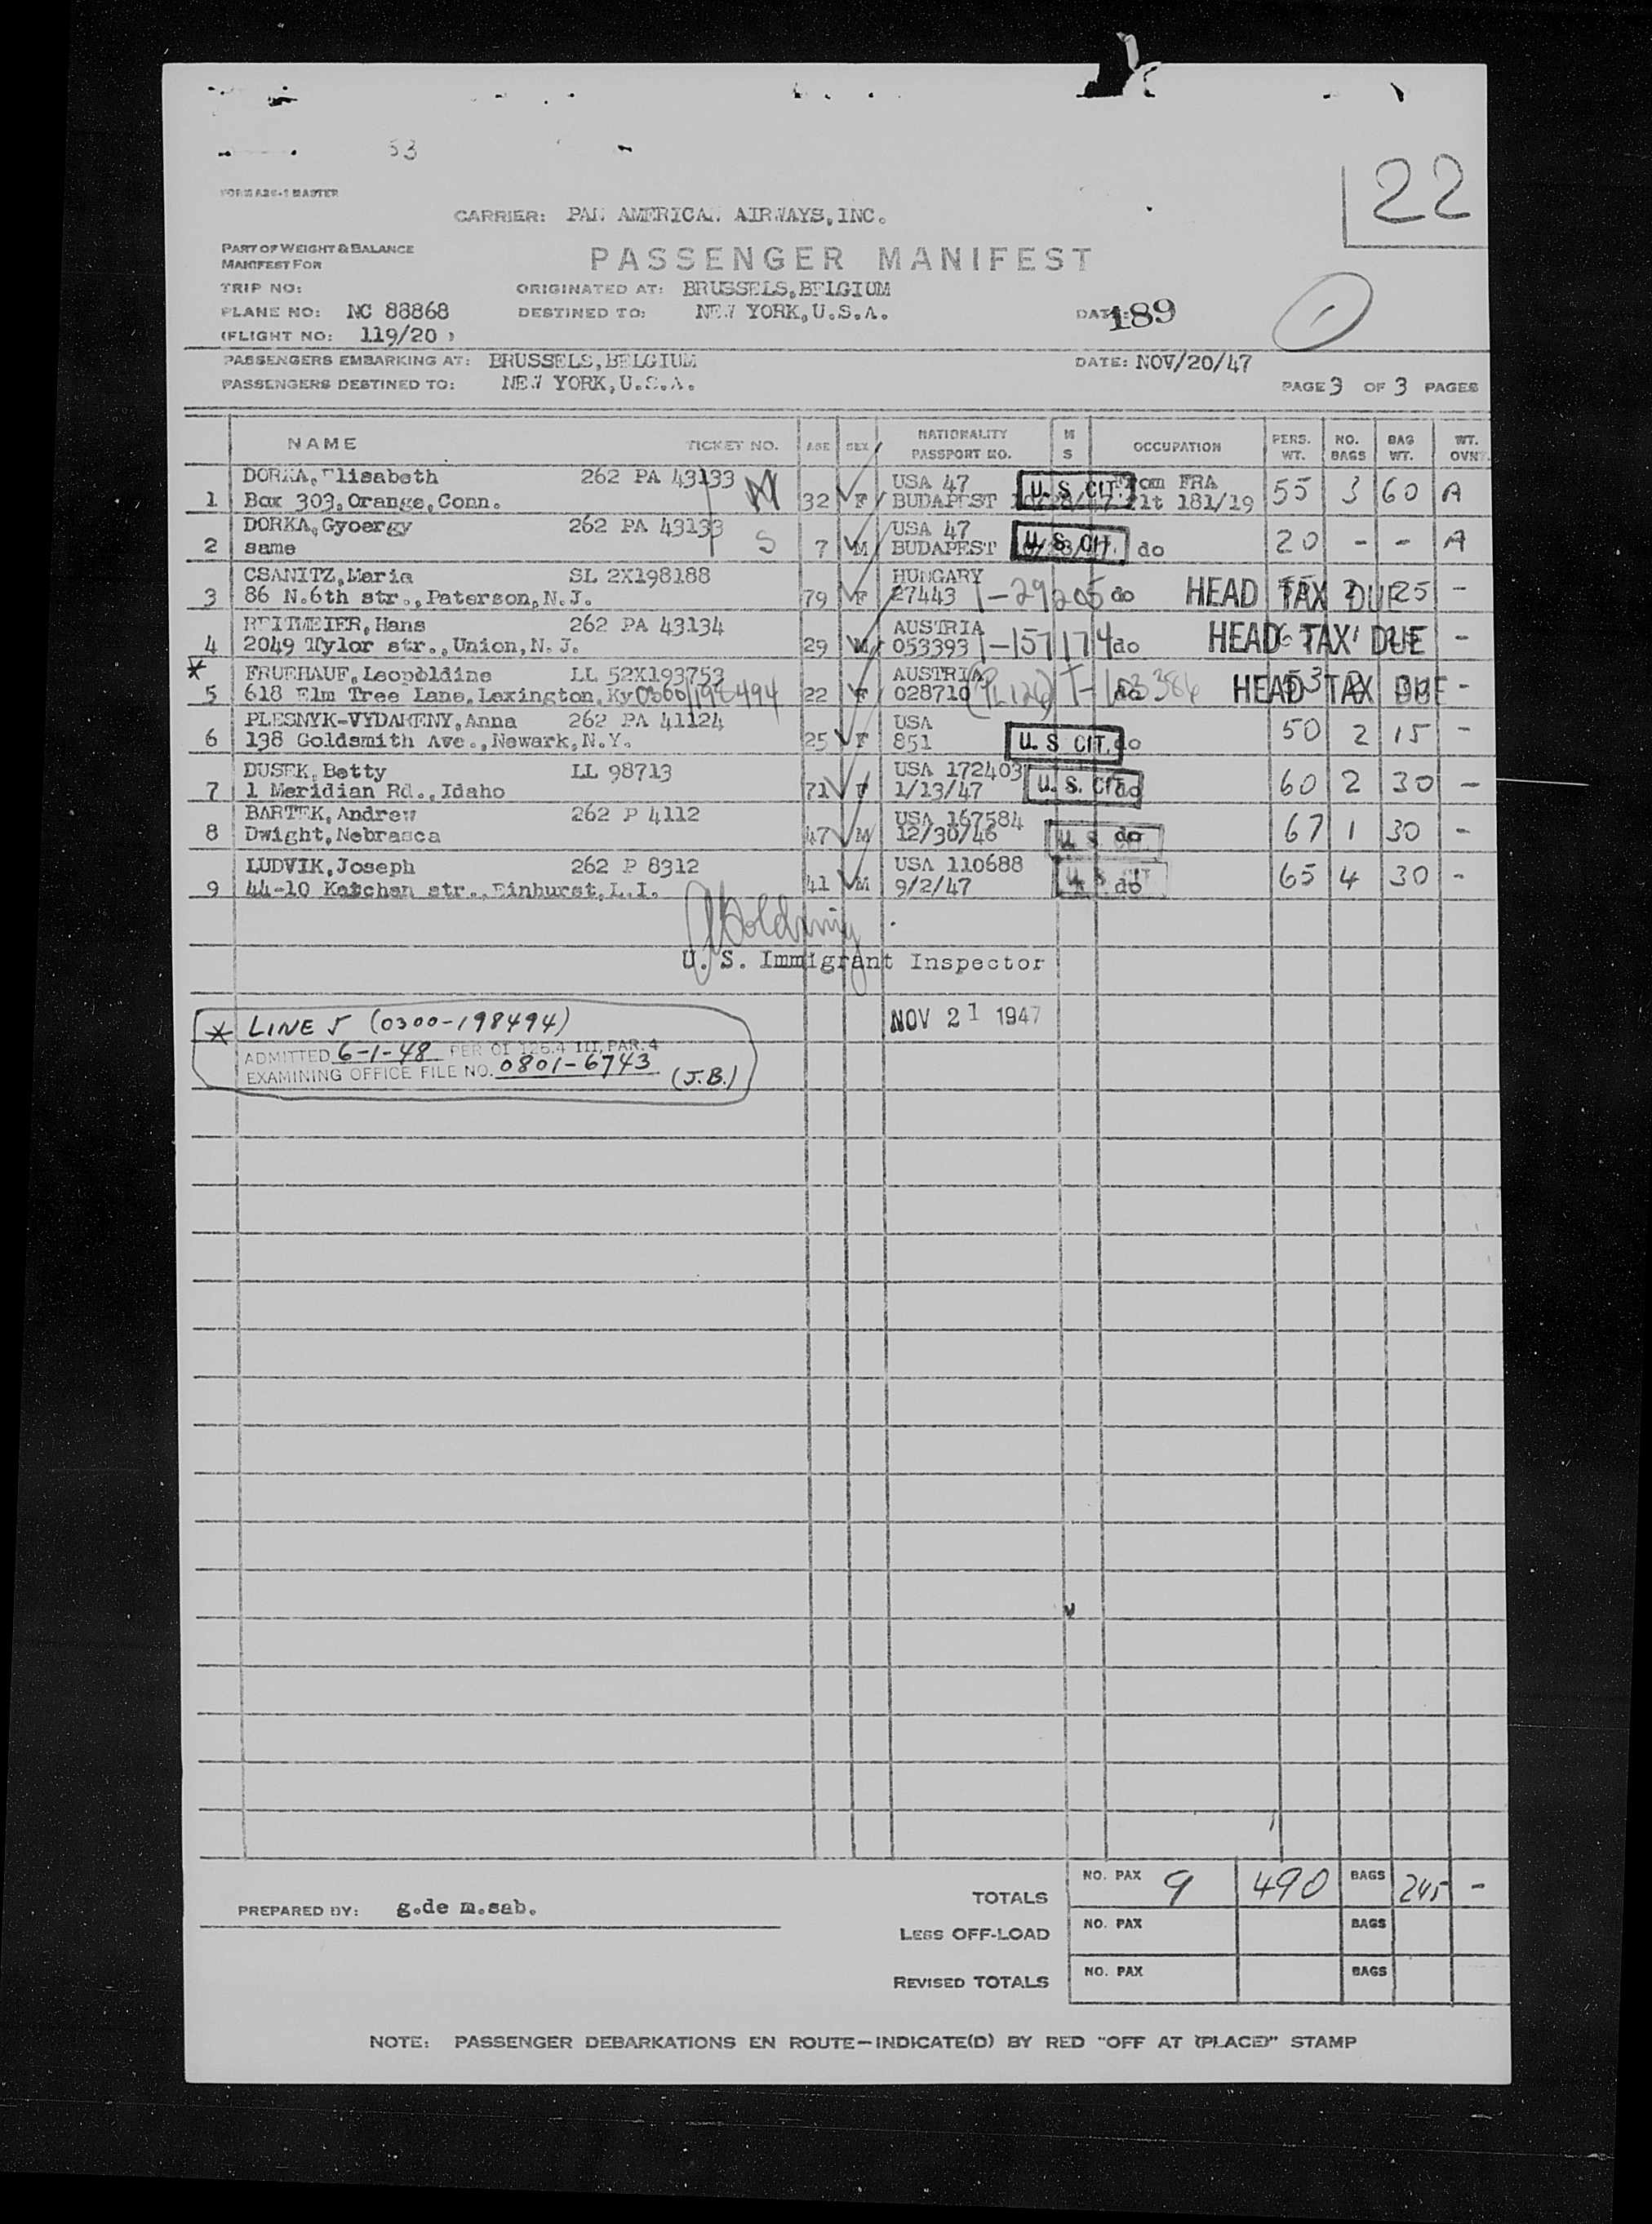 53
FORM A26-1 MASTER
22
CARRIER: PAN AMERICAN AIRWAYS,INC.
PART OF WEIGHT & BALANCE
MANIFEST FOR
PASSENGER MANIFEST
TRIP NO: ORIGINATED AT: BRUSSELS,BELGIUM
PLANE NO: NC 88868 DESTINED TO: NEW YORK,U.S.A. DATE: 189
(FLIGHT NO: 119/20 ) 1
PASSENGERS EMBARKING AT: BRUSSELS,BELGIUM DATE: NOV/20/47
PASSENGERS DESTINED TO: NEW YORK,U.S.A. PAGE 3 OF 3 PAGES
NAME TICKET NO. AGE SEX NATIONALITY PASSPORT NO. M S OCCUPATION PERS. WT. NO. BAGS BAG WT. WT. OVNT.
DORKA,Elisabeth 262 PA 43133 M USA 47 U. S CIT. From FRA
1 Box 303,Orange,Conn. 32 F BUDAPEST Flt 181/19 55 3 60 A
DORKA,Gyoergy 262 PA 43133 S USA 47
2 same 7 M BUDAPEST U. S CIT. do 20 - - A
CSANITZ,Maria SL 2X198188 HUNGARY
3 86 N.6th str.,Paterson,N.J. 79 F 27443 I-29205 do HEAD TAX DUE 25 -
REITMEIER,Hans 262 PA 43134 AUSTRIA
4 2049 Tylor str.,Union,N.J. 29 M 053393 I-157174 do HEAD TAX DUE -
* FRUEHAUF,Leopoldine LL 52X193753 AUSTRIA
5 618 Elm Tree Lane,Lexington,Ky 0300/198494 22 F 028710 do HEAD TAX DUE -
PLESNYK-VYDARENY,Anna 262 PA 41124 USA
6 138 Goldsmith Ave.,Newark,N.Y. 25 F 851 U. S CIT. do 50 2 15 -
DUSEK,Betty LL 98713 USA 172403
7 1 Meridian Rd.,Idaho 71 F 1/13/47 U. S. CIT do 60 2 30 -
BARTEK,Andrew 262 P 4112 USA 167584
8 Dwight,Nebrasca 47 M 12/30/46 U. S do 67 1 30 -
LUDVIK,Joseph 262 P 8312 USA 110688
9 44-10 Katchan str.,Einhurst,L.I. 41 M 9/2/47 U. S. CIT do 65 4 30 -
U. S. Immigrant Inspector
NOV 21 1947
* LINE 5 (0300-198494)
ADMITTED 6-1-48 PER OI 126.4 III, PAR. 4
EXAMINING OFFICE FILE NO. 0801-6743 (J.B.)
TOTALS NO. PAX 9 490 BAGS 245 -
PREPARED BY: g.de m.sab.
LESS OFF-LOAD NO. PAX BAGS
REVISED TOTALS NO. PAX BAGS
NOTE: PASSENGER DEBARKATIONS EN ROUTE—INDICATE(D) BY RED "OFF AT (PLACE)" STAMP